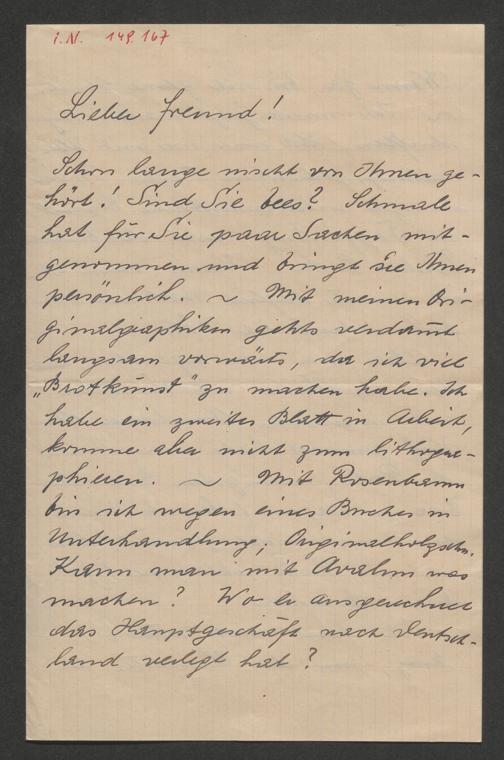 I.N. 149.167
Lieber Freund!
Schon lange nischt von Ihnen ge-
hört! Sind Sie bees? Schmale
hat für Sie paar Sachen mit-
genommen und bringt sie Ihnen
persönlich. ~ Mit meinen Ori-
ginalgraphiken gehts verdammt
langsam vorwärts, da ich viel
„Brotkunst" zu machen habe. Ich
habe ein zweites Blatt in Arbeit,
komme aber nicht zum lithogra-
phieren. ~ Mit Rosenbaum
bin ich wegen eines Buches in
Unterhandlung; Originalholzschn.
Kann man mit Avalun was
machen? Wo er ausgerechnet
das Hauptgeschäft nach Deutsch-
land verlegt hat?